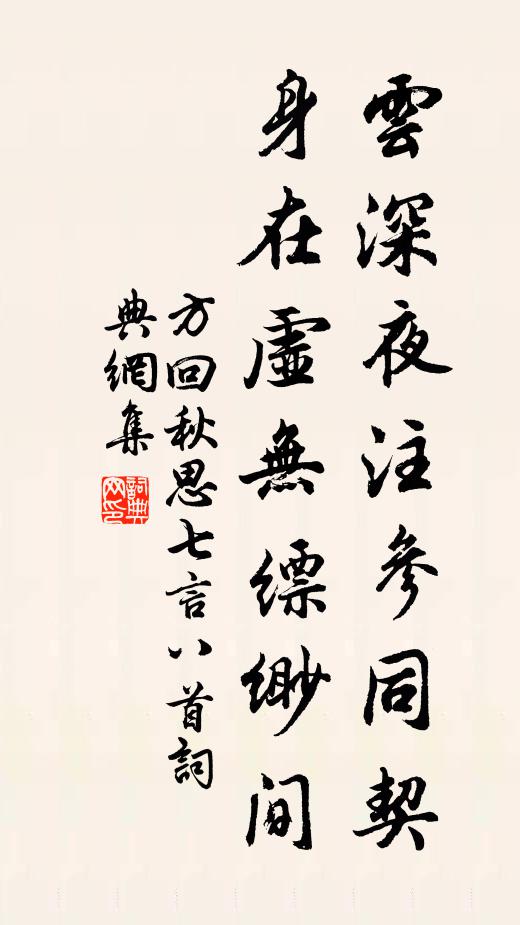 雲深夜注參同契
身在虛無縹緲間
方回秋思七言八首詞
典網集
詞典网印